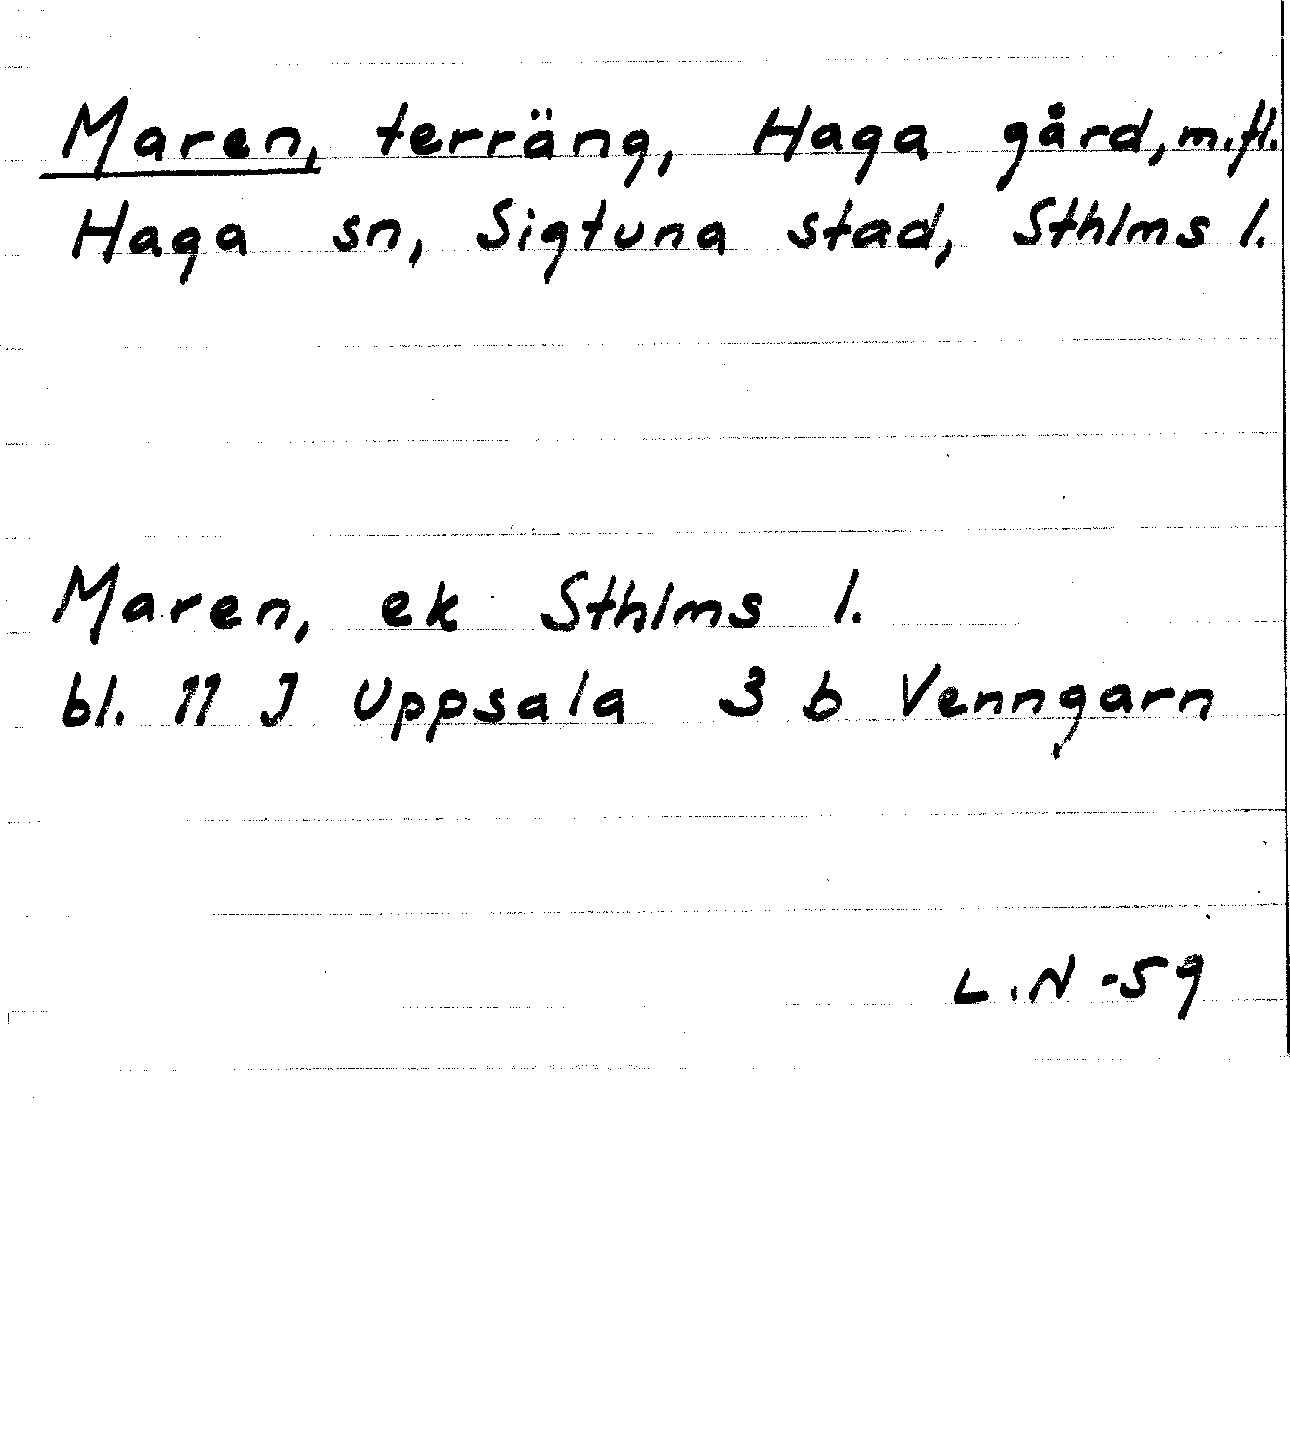 Maren, terräng, Haga gård, m.fl.
Haga sn, Sigtuna stad, Sthlms l.
Maren, ek Sthlms l.
bl. 11 J Uppsala 3 b Venngarn
L.N -59